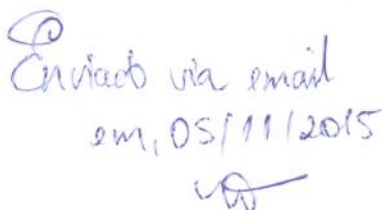 Enviado via email
em, 05/11/2015